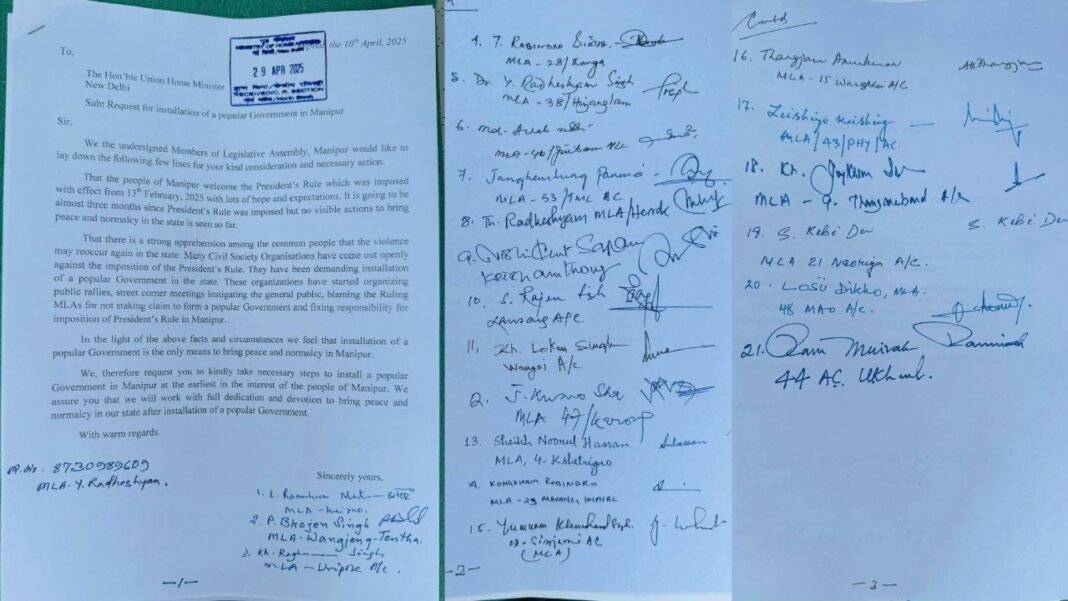 To,
The Hon'ble Union Home Minister
New Delhi
the 10th April, 2025
MINISTRY OF HOME AFFAIRS
29 APR 2025
Sub: Request for installation of a popular Government in Manipur
Sir,
We the undersigned Members of Legislative Assembly, Manipur would like to
lay down the following few lines for your kind consideration and necessary action.
That the people of Manipur welcome the President's Rule which was imposed
with effect from 13th February, 2025 with lots of hope and expectations. It is going to be
almost three months since President's Rule was imposed but no visible actions to bring
peace and normalcy in the state is seen so far.
That there is a strong apprehension among the common people that the violence
may reoccur again in the state. Many Civil Society Organisations have come out openly
against the imposition of the President's Rule. They have been demanding installation
of a popular Government in the state. These organizations have started organizing
public rallies, street corner meetings instigating the general public, blaming the Ruling
MLAs for not staking claim to form a popular Government and fixing responsibility for
imposition of President's Rule in Manipur.
In the light of the above facts and circumstances we feel that installation of a
popular Government is the only means to bring peace and normalcy in Manipur.
We, therefore request you to kindly take necessary steps to install a popular
Government in Manipur at the earliest in the interest of the people of Manipur. We
assure you that we will work with full dedication and devotion to bring peace and
normalcy in our state after installation of a popular Government.
With warm regards.
8730989609
MLA. Y. Radheshyam.
Sincerely yours,
1. L.
MLA-
2. P. Bhojen Singh
MLA-Wangjeng-Tentha.
3. Kh. Singh
MLA - A/c.
-1-
4. T. Robindro Singh.
MLA-28/Thanga
5. Dr. Y. Radheshyam Singh
MLA-38/Hiyanglam
6. Md.
MLA-40/Jiribam
7. Janghemlung Panmei
MLA-53/TML AC
8. Th. Radheshyam MLA/Heirok
9. Sapam
10. S. Rajen
A/C
11, Kh. Loken Singh
Wangoi A/c
12. J. Kumo Sha
MLA 47/Karong
13. Sheikh Noorul Hassan
MLA, 4-Kshetrigao
14. KONGKHAM ROBINDRO
MLA-23 MAYANG IMPHAL
15. Yumnam
AC
(MLA)
-2-
Contd
16. Thangjam Arunkumar
MLA-15 Wangkhei A/C
17. Leishiyo Keishing
MLA/43/PHY/AC.
18. Kh.
MLA - 9. Thangmeiband A/c
19. S. Kebi Devi
S. Kebi Devi
MLA 21 Naoriya A/C.
20. LOSÜ Dikho, MLA.
48 MAO A/C.
21. Ram Muivah
44 AC. Ukhrul.
-3-